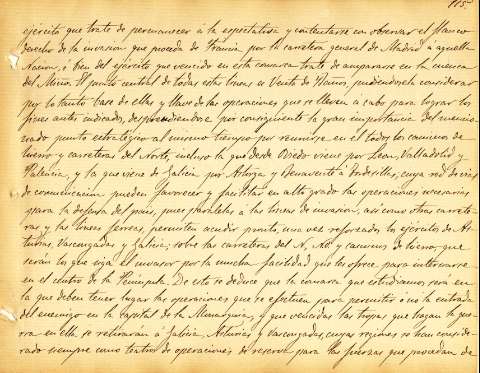 115.
ejército que trate de permanecer á la espectativa y contentarse con observar el flanco
derecho de la invasion que proceda de Francia por la carretera general de Madrid á aquella
Nacion, ó bien del ejército que vencido en esta comarca trate de ampararse en la cuenca
del Miño. El punto central de todas estas lineas es Venta de Baños, pudiendosela considerar
por lo tanto base de ellas y llave de las operaciones que se lleven á cabo para lograr los
fines antes indicados, desprendiendose por consiguiente la gran importancia del mencio-
nado punto estratégico al mismo tiempo por reunirse en el todos los caminos de
hierro y carreteras del Norte, incluso la que desde Oviedo viene por Leon, Valladolid y
Palencia, y la que viene de Galicia por Astorga y Benavente á Tordesillas, cuya red de vias
de comunicacion pueden favorecer y facilitar en alto grado las operaciones necesarias
para la defensa del pais, pues paralelas á las lineas de invasion, asi como otras carrete-
ras y las lineas ferreas, permiten acudir pronto, una vez reforzado, los ejércitos de As-
turias, Vascongadas y Galicia, sobre las carreteras del N, NE. y caminos de hierro, que
serán los que siga el invasor por la mucha facilidad que les ofrece para internarse
en el centro de la Peninsula. De esto se deduce que la comarca que estudiamos será en
la que deben tener lugar las operaciones que se efectuen para permitir ó no la entrada
del enemigo en la capital de la Monarquia, y que vencidas las tropas que hagan la gue-
rra en ella se retirarán á Galicia, Asturias y Vascongadas, cuyas regiones se han conside-
rado siempre como teatros de operaciones de reserva para las fuerzas que procedan de